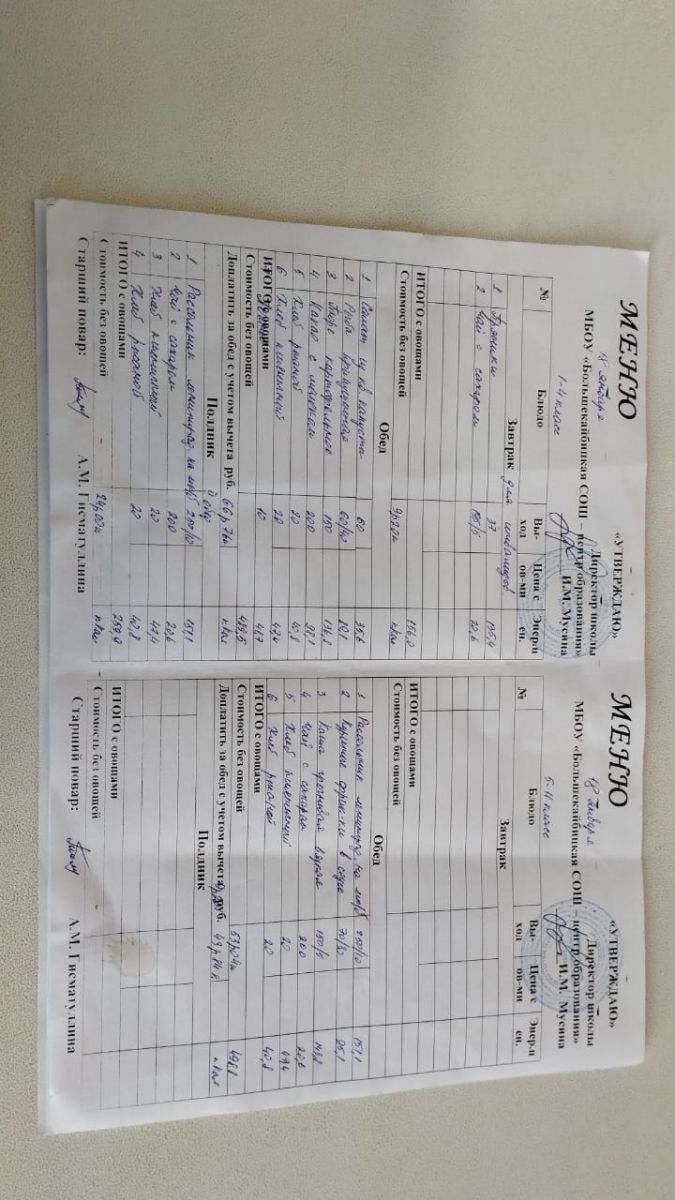 МЕНЮ
«УТВЕРЖДАЮ»
Директор школы
МБОУ «Большекайбицкая СОШ – центр образования»
18 января
И.М.Мусина
1-4 класс
№ Блюдо Вы-ход Цена с ов-ми Энер.ц ен.
Завтрак для инвалидов
1 Пряники 37 135,4
2 Чай с сахаром 185/5 20,6
ИТОГО с овощами 156,0
Стоимость без овощей 9р20к ккал
Обед
1 Салат из кв. капусты 60 35,6
2 Рыба 60/40 89,1
3 Пюре картофельное 150 136,8
4 Какао с молоком 200 98,1
5 Хлеб ржаной 20 40,8
6 Хлеб пшеничный 20 47,4
ИТОГО с овощами 10 41,7
Стоимость без овощей 489,5
Доплатить за обед с учетом вычета руб. 66р76к ккал
Полдник
1 Рассольник ленинград на м/б 250/10 157,1
2 Чай с сахаром 200 20,6
3 Хлеб пшеничный 20 47,4
4 Хлеб ржаной 20 40,8
ИТОГО с овощами 259,9
Стоимость без овощей - 24р00к ккал
Старший повар: А.М. Гисматуллина
МЕНЮ
«УТВЕРЖДАЮ»
Директор школы
МБОУ «Большекайбицкая СОШ – центр образования»
18 января
И.М. Мусина
5-11 класс
№ Блюдо Вы-ход Цена с ов-ми Энер.ц ен.
Завтрак
ИТОГО с овощами
Стоимость без овощей
Обед
1 Рассольник ленинград на м/б 250/10 157,1
2 Куриные в соусе 70/20 85,1
3 Каша гречневая 150/5 143,8
4 Чай с сахаром 200 20,6
5 Хлеб пшеничный 20 47,4
6 Хлеб ржаной 20 40,8
ИТОГО с овощами
Стоимость без овощей 53р04к 498,8
Доплатить за обед с учетом вычета руб. 43р84к ккал
Полдник
ИТОГО с овощами
Стоимость без овощей -
Старший повар: А.М. Гисматуллина